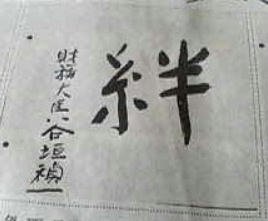 絆
財務大臣 谷垣禎一